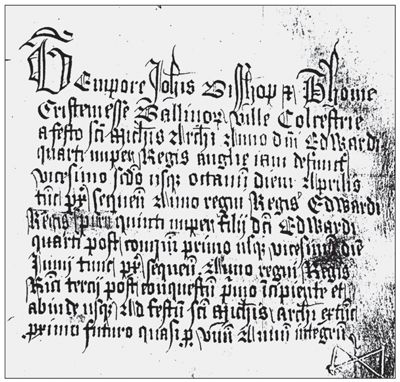 Tempore Johis Bisshop & Thome
Cristemesse Ballivorꝝ ville Colcestrie
a festo sci Michis Archi Anno dni Edwardi
quarti nuper Regis anglie iam defuncti
vicesimo scdo usqꝫ octauum diem Aprilis
tuc px sequen Anno regni Regis Edwardi
Regis quinti nuper filij dni Edwardi
quarti post conqm primo usqꝫ vicesimu die
Junij tunc px sequen Anno regni Regis
Rici tercij post conquestum pmo incipiente et
abinde usqꝫ Ad festum sci Michis archi extuc
primi futuro quasi ꝑ unu Annu integru